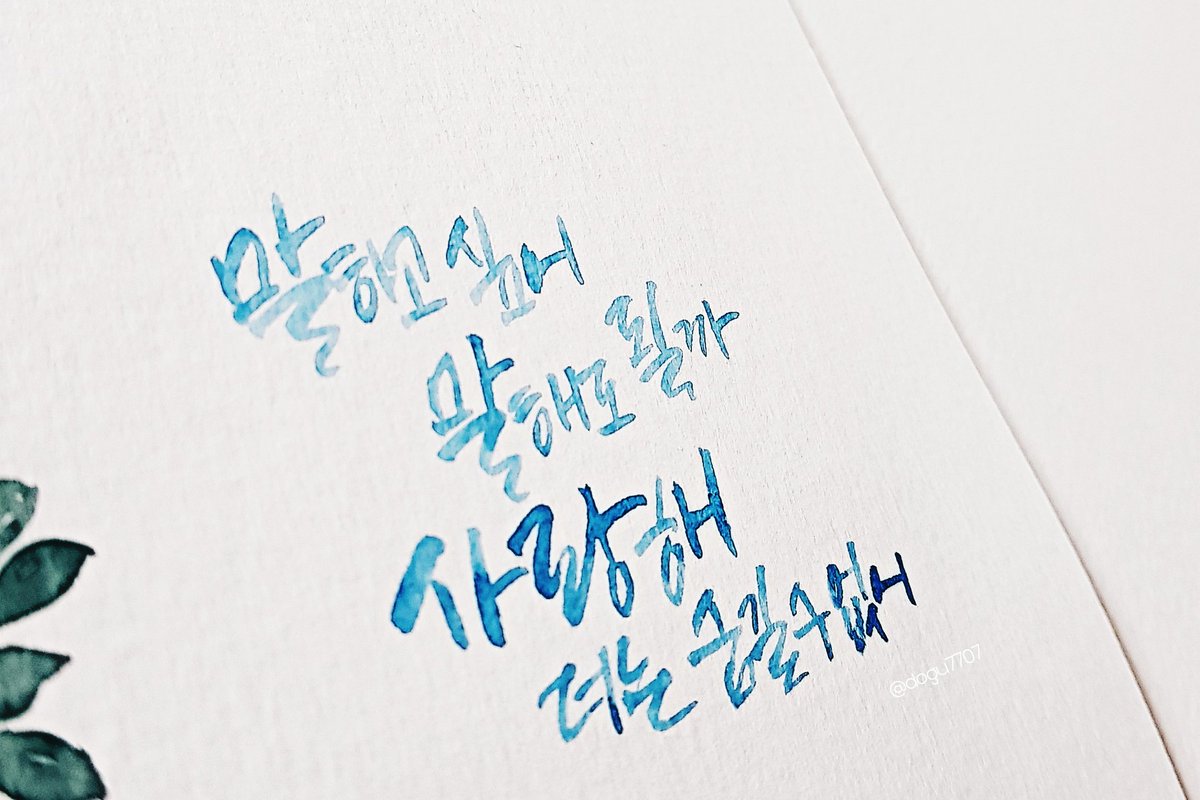 말하고 싶어
말해도 될까
사랑해
더는 숨길 수 없어
@dogu7707